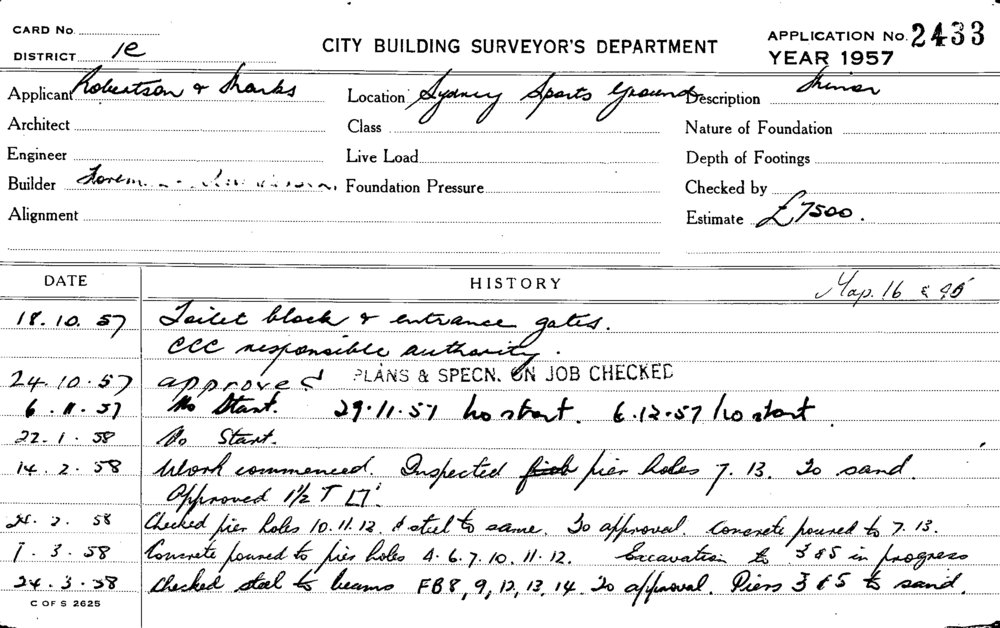 CARD No.
DISTRICT 1e
CITY BUILDING SURVEYOR'S DEPARTMENT
APPLICATION No. 2433
YEAR 1957
Applicant Robertson & Marks
Location Sydney Sports Ground
Description Minor
Architect
Class
Nature of Foundation
Engineer
Live Load
Depth of Footings
Builder
Foundation Pressure
Checked by
Alignment
Estimate £7500.
DATE HISTORY Map. 16 & 95
18.10.57 Toilet block & entrance gates.
CCC responsible authority.
24.10.57 approved PLANS & SPECN. ON JOB CHECKED
6.11.57 No Start. 29.11.57 No start. 6.12.57 No start
22.1.58 No Start.
14.2.58 Work commenced. Inspected pier holes 7.13. To sand.
Approved 1½ T
2.58 Checked pier holes 10.11.12. & steel to same. To approval. Concrete poured to 7.13.
7.3.58 Concrete poured to pier holes 4.6.7.10.11.12. Excavation to 3 & 5 in progress
24.3.58 Checked steel to beams FB8, 9, 12, 13, 14. To approval. Piers 3 & 5 to sand.
C OF S 2625